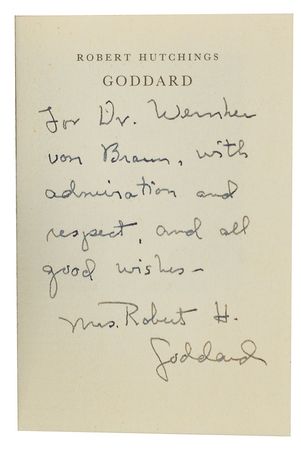 ROBERT HUTCHINGS
GODDARD
For Dr. Wernher
von Braun, with
admiration and
respect, and all
good wishes –
Mrs. Robert H.
Goddard